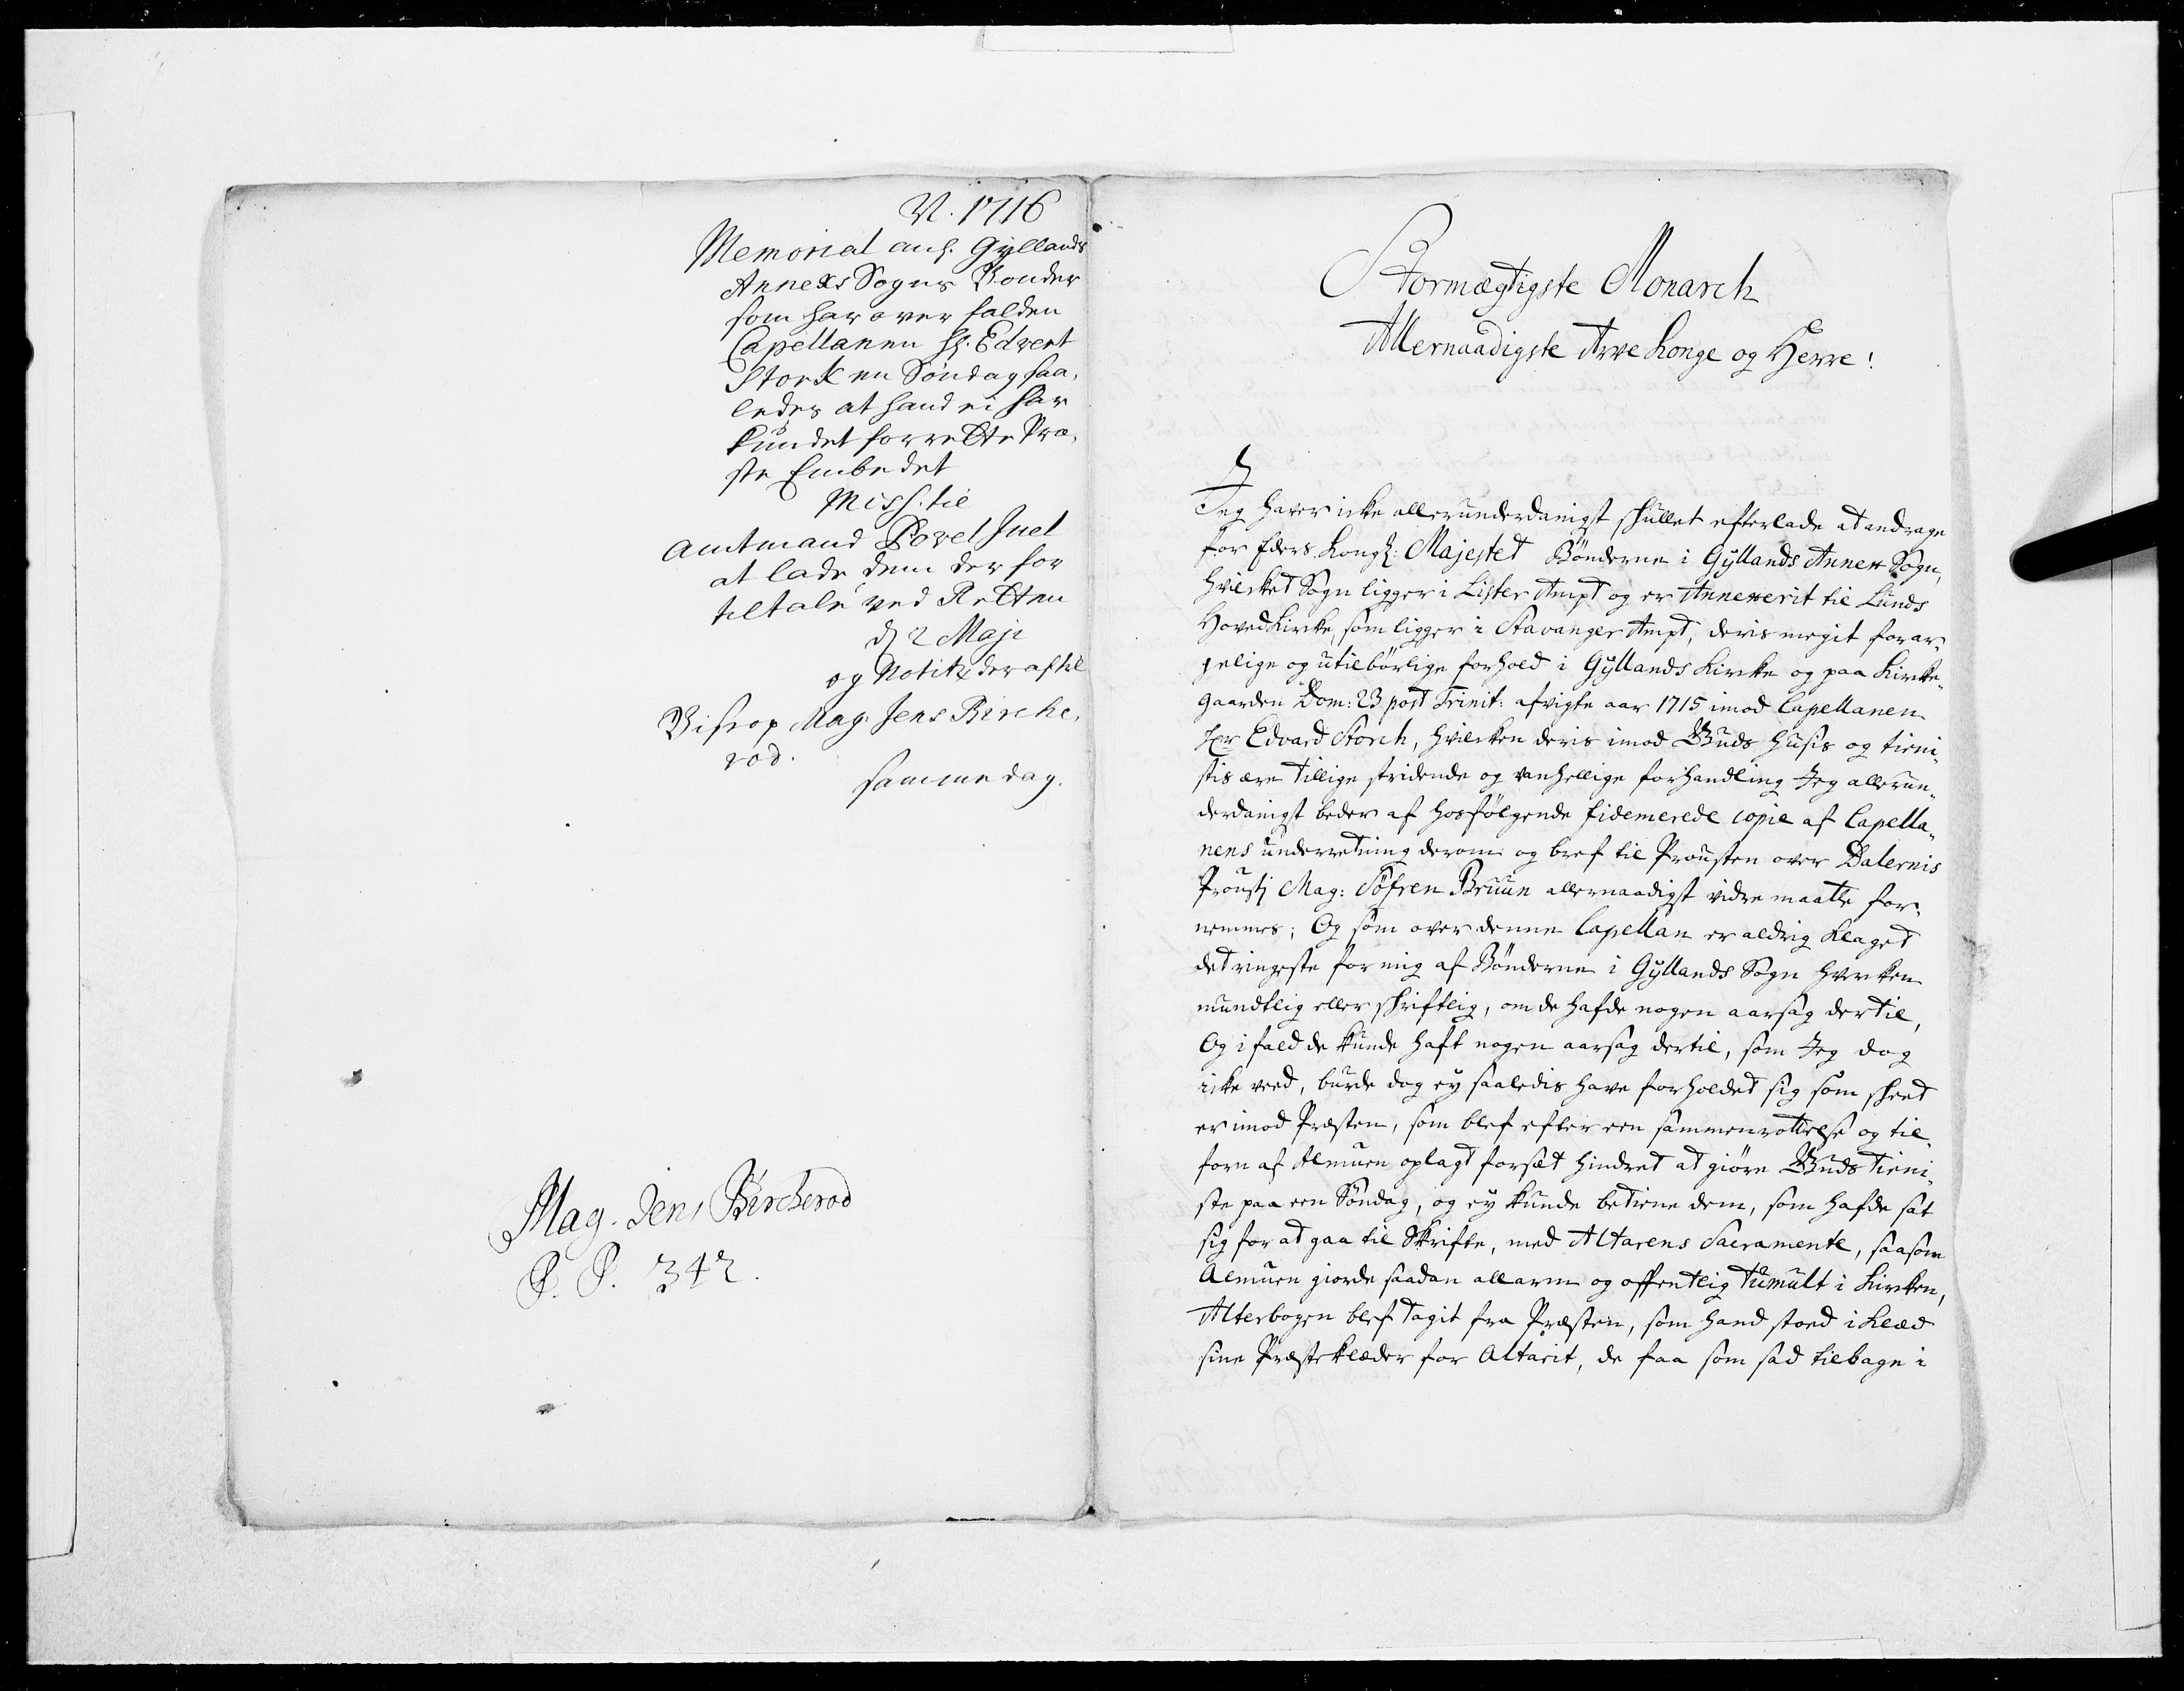 N. 1716
Memorial anl. Gyllands
Annexs Sogns Bonder
som har over falden
Capellanen Hr. Edvert
Stork en Søndag saa,
ledes at hand ei har
kundet forrette Præ,
ste Embedet
Miss. til
Amtmand Povel Juel
at lade dem der for
tiltale ved Retten
d 2 Maji
og Notitz der af til
Bisrop Mag. Jens Birche,
rod.
samme dag.
Mag. Jens Bircherod
P. P. 342.
Stormægtigste Monarch
Allernaadigste Arve Konge og Herre!
Jeg haver icke allerunderdanigst skullet efterlade at andrage
for Eders Kongl: Majestet Bønderne i Gyllands Annex Sogn,
hvilcket Sogn ligger i Lister Ampt og er Annexerit til Lunds
Hoved Kircke, som ligger i Stavanger Ampt, deris megit forar¬
gelige og utilbørlige forhold i Gyllands Kircke og paa Kircke¬
gaarden Dom: 23 post Trinit: afvigte aar 1715 imod Capellanen
Hr Edvard Storch, hvilcken deris imod Guds Husis og tieni¬
stis ære tillige stridende og vanhellige forhandling Jeg allerun¬
derdanigst beder af hosfølgende fidemerede copie af Capella¬
nens underretning derom og bref til Prousten over Dalernis
Prousti Mag: Søfren Bruun allernaadigst vidre maatte for¬
nemmes; Og som over denne Capellan er aldrig klaget
det ringeste for mig af Bønderne i Gyllands Sogn hvercken
mundtlig eller skriftlig, om de hafde nogen aarsag dertil,
Og i fald de kunde haft nogen aarsag dertil, som Jeg dog
icke veed, burde dog ey saaledis have forholdet sig som skeed
er imod Præsten, som blef efter een sammenrottelse og til¬
forn af Almuen oplagt forsæt hindret at giøre Guds tieni¬
ste paa een Søndag, og ey kunde betiene dem, som hafde sat
sig for at gaa til Skrifte, med Altarens Sacramente, saasom
Almuen giorde saadan allarm og offentlig tumult i Kircken,
Alterbogen blef tagit fra Præsten, som hand stoed i klæd
sine Præsteklæder for Altarit, de faa som sad tilbage i